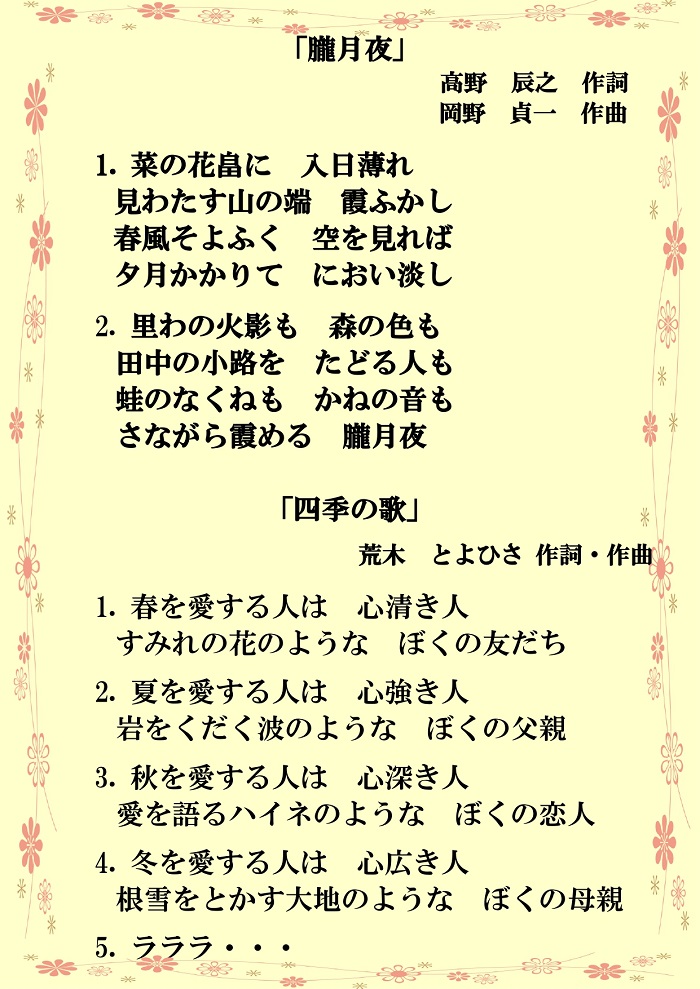 「朧月夜」
高野　辰之　作詞
岡野　貞一　作曲
1. 菜の花畠に　入日薄れ
見わたす山の端　霞ふかし
春風そよふく　空を見れば
夕月かかりて　におい淡し
2. 里わの火影も　森の色も
田中の小路を　たどる人も
蛙のなくねも　かねの音も
さながら霞める　朧月夜
「四季の歌」
荒木　とよひさ 作詞・作曲
1. 春を愛する人は　心清き人
すみれの花のような　ぼくの友だち
2. 夏を愛する人は　心強き人
岩をくだく波のような　ぼくの父親
3. 秋を愛する人は　心深き人
愛を語るハイネのような　ぼくの恋人
4. 冬を愛する人は　心広き人
根雪をとかす大地のような　ぼくの母親
5. ラララ・・・